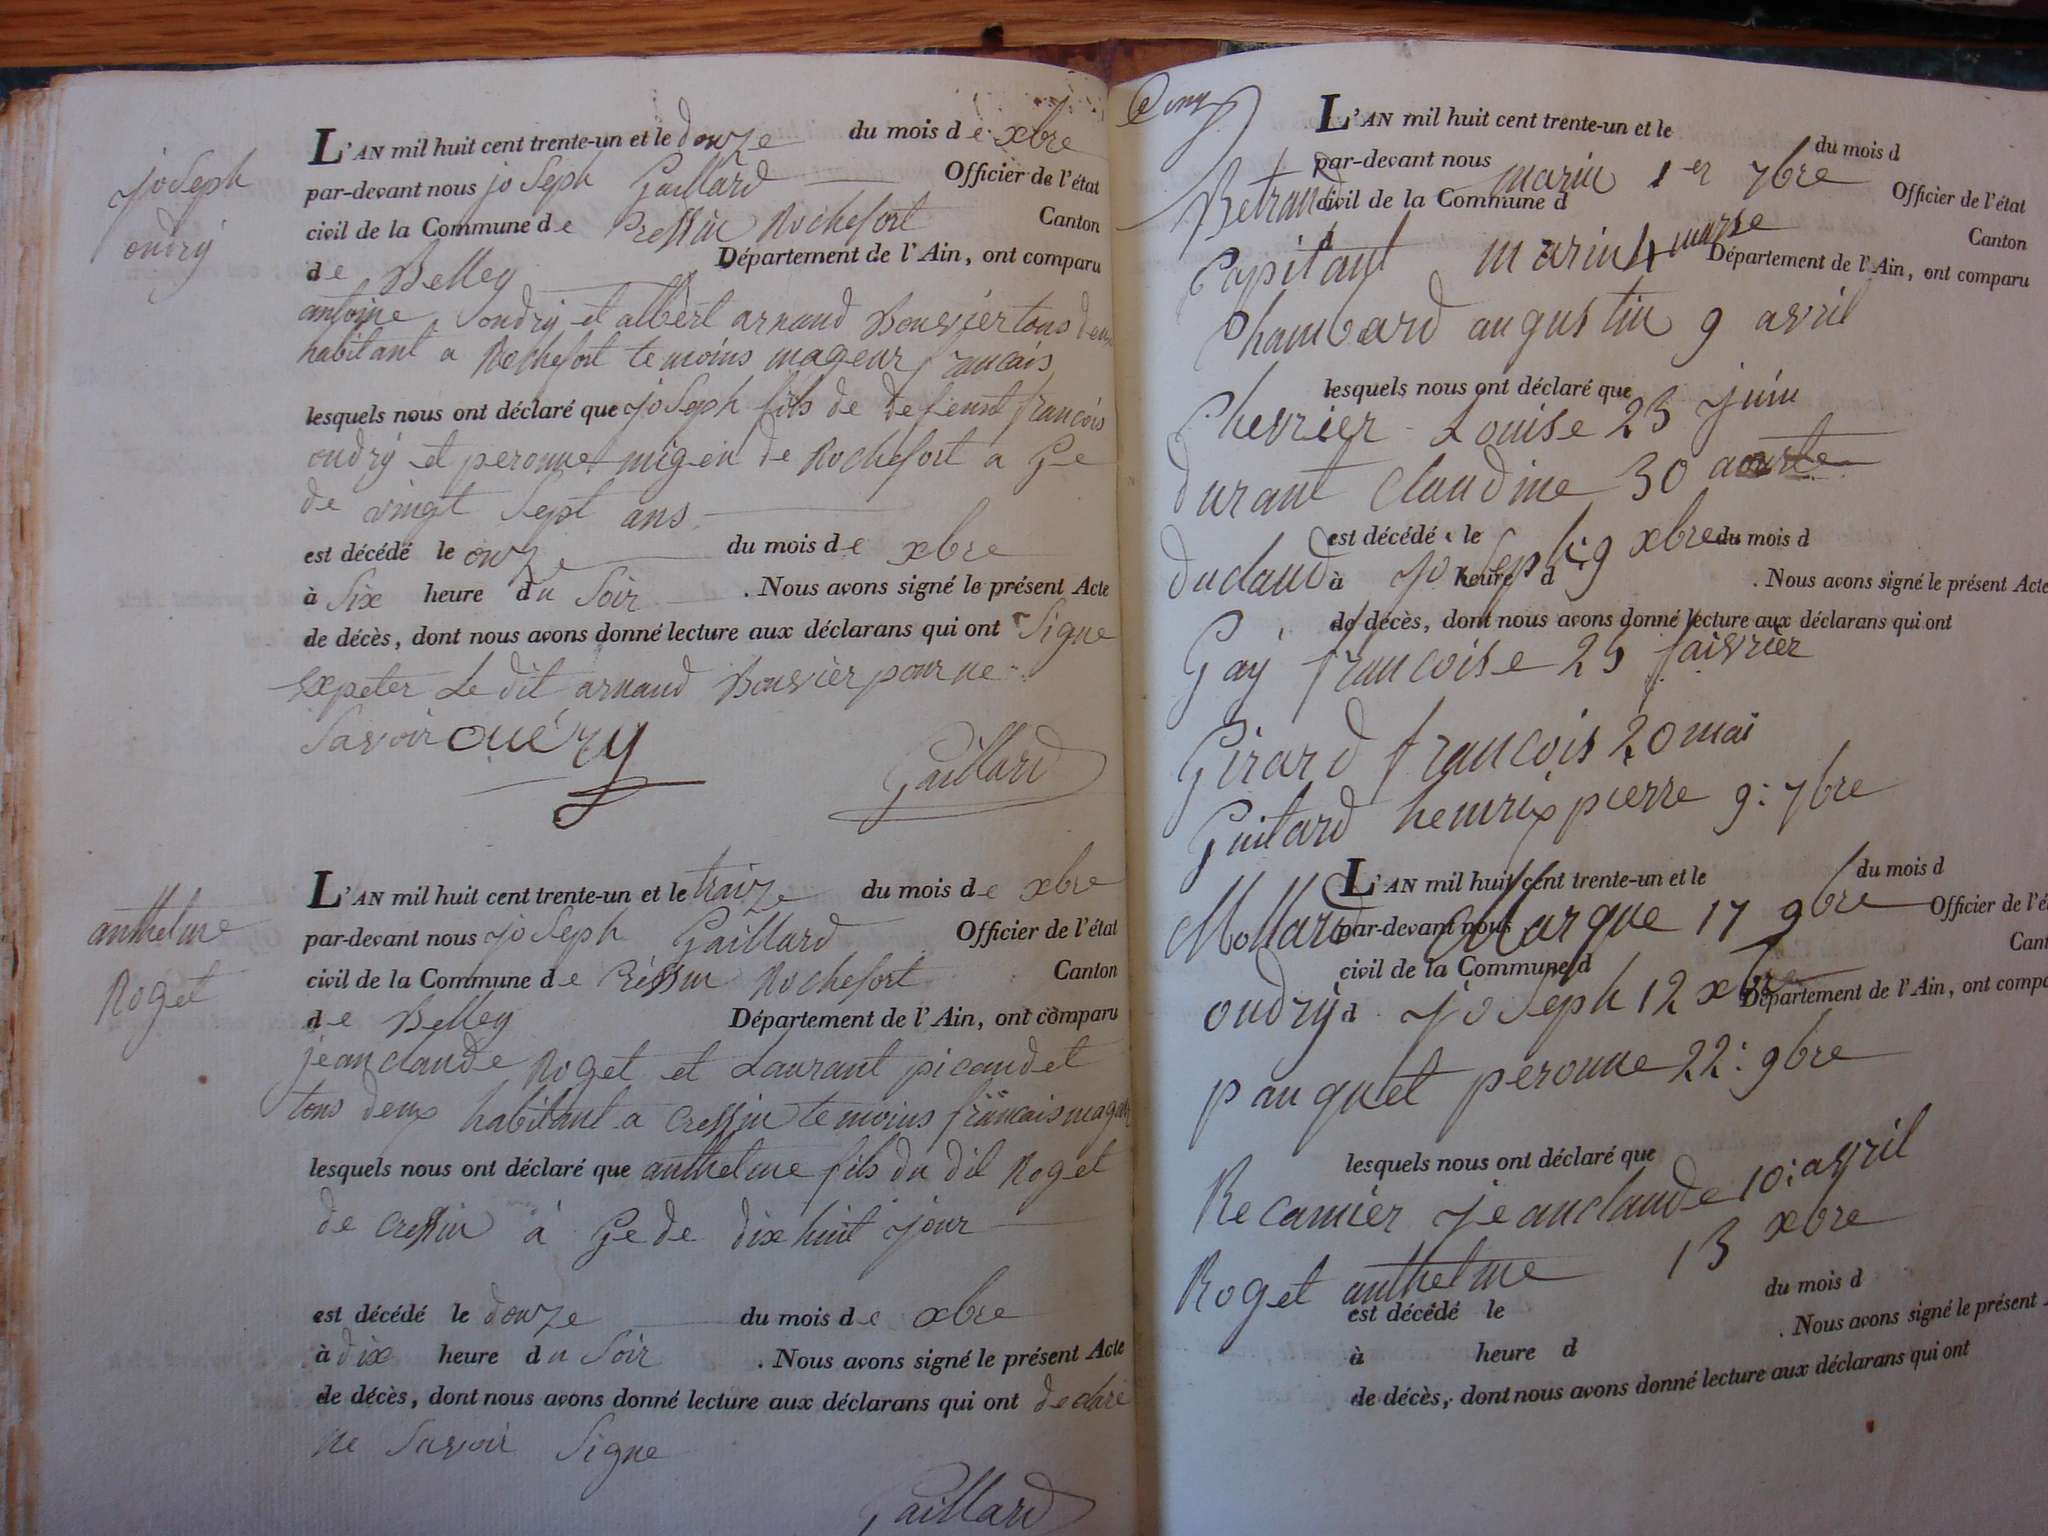 joseph
ondry
L'AN mil huit cent trente-un et le douze du mois de xbre
par-devant nous joseph Gaillard Officier de l'état
civil de la Commune de Cressin Rochefort Canton
de Belley Département de l'Ain, ont comparu
antoine ondry et albert arnaud Bouvier tous deux
habitant a Rochefort temoins mageur francais
lesquels nous ont déclaré que joseph fils de defeunt francois
ondry et peronne migen de Rochefort a Ge
de vingt sept ans
est décédé le onze du mois de xbre
à six heure du soir . Nous avons signé le présent Acte
de décès, dont nous avons donné lecture aux déclarans qui ont signe
expeter Le dit arnaud Bouvier pour ne
savoir ouéry
Gaillard
anthelme
Roget
L'AN mil huit cent trente-un et le traize du mois de xbre
par-devant nous joseph Gaillard Officier de l'état
civil de la Commune de Cressin Rochefort Canton
de Belley Département de l'Ain, ont comparu
jean claude Roget et Laurant picaudet
tous deux habitant a Cressin temoins francais mageur
lesquels nous ont déclaré que anthelme fils du dit Roget
de Cressin à Ge de dix huit jour
est décédé le douze du mois de xbre
à dix heure du soir . Nous avons signé le présent Acte
de décès, dont nous avons donné lecture aux déclarans qui ont declaré
ne savoir signe
Gaillard
L'AN mil huit cent trente-un et le du mois d
par-devant nous Officier de l'état
Betrand marin 1er 7bre
civil de la Commune d Canton
Capitant marin 4 marse
Département de l'Ain, ont comparu
Chambard augustin 9 avril
lesquels nous ont déclaré que
Chevrier Louise 23 juin
durant Claudine 30
est décédé le du mois d
duclaud joseph 9 xbre
à heure d . Nous avons signé le présent Acte
de décès, dont nous avons donné lecture aux déclarans qui ont
Gay francoise 25 faivrier
Girard francois 20 mai
Guitard henrix pierre 9: 7bre
L'AN mil huit cent trente-un et le du mois d
Mollard Marque 17 9bre
par-devant nous Officier de l'é
civil de la Commune d Cant
ondry joseph 12 xbre
d Département de l'Ain, ont compa
pauquet peronne 22: 9bre
lesquels nous ont déclaré que
Recamier jean claude 10: avril
Roget anthelme 13 xbre
est décédé le du mois d
à heure d . Nous avons signé le présent
de décès, dont nous avons donné lecture aux déclarans qui ont